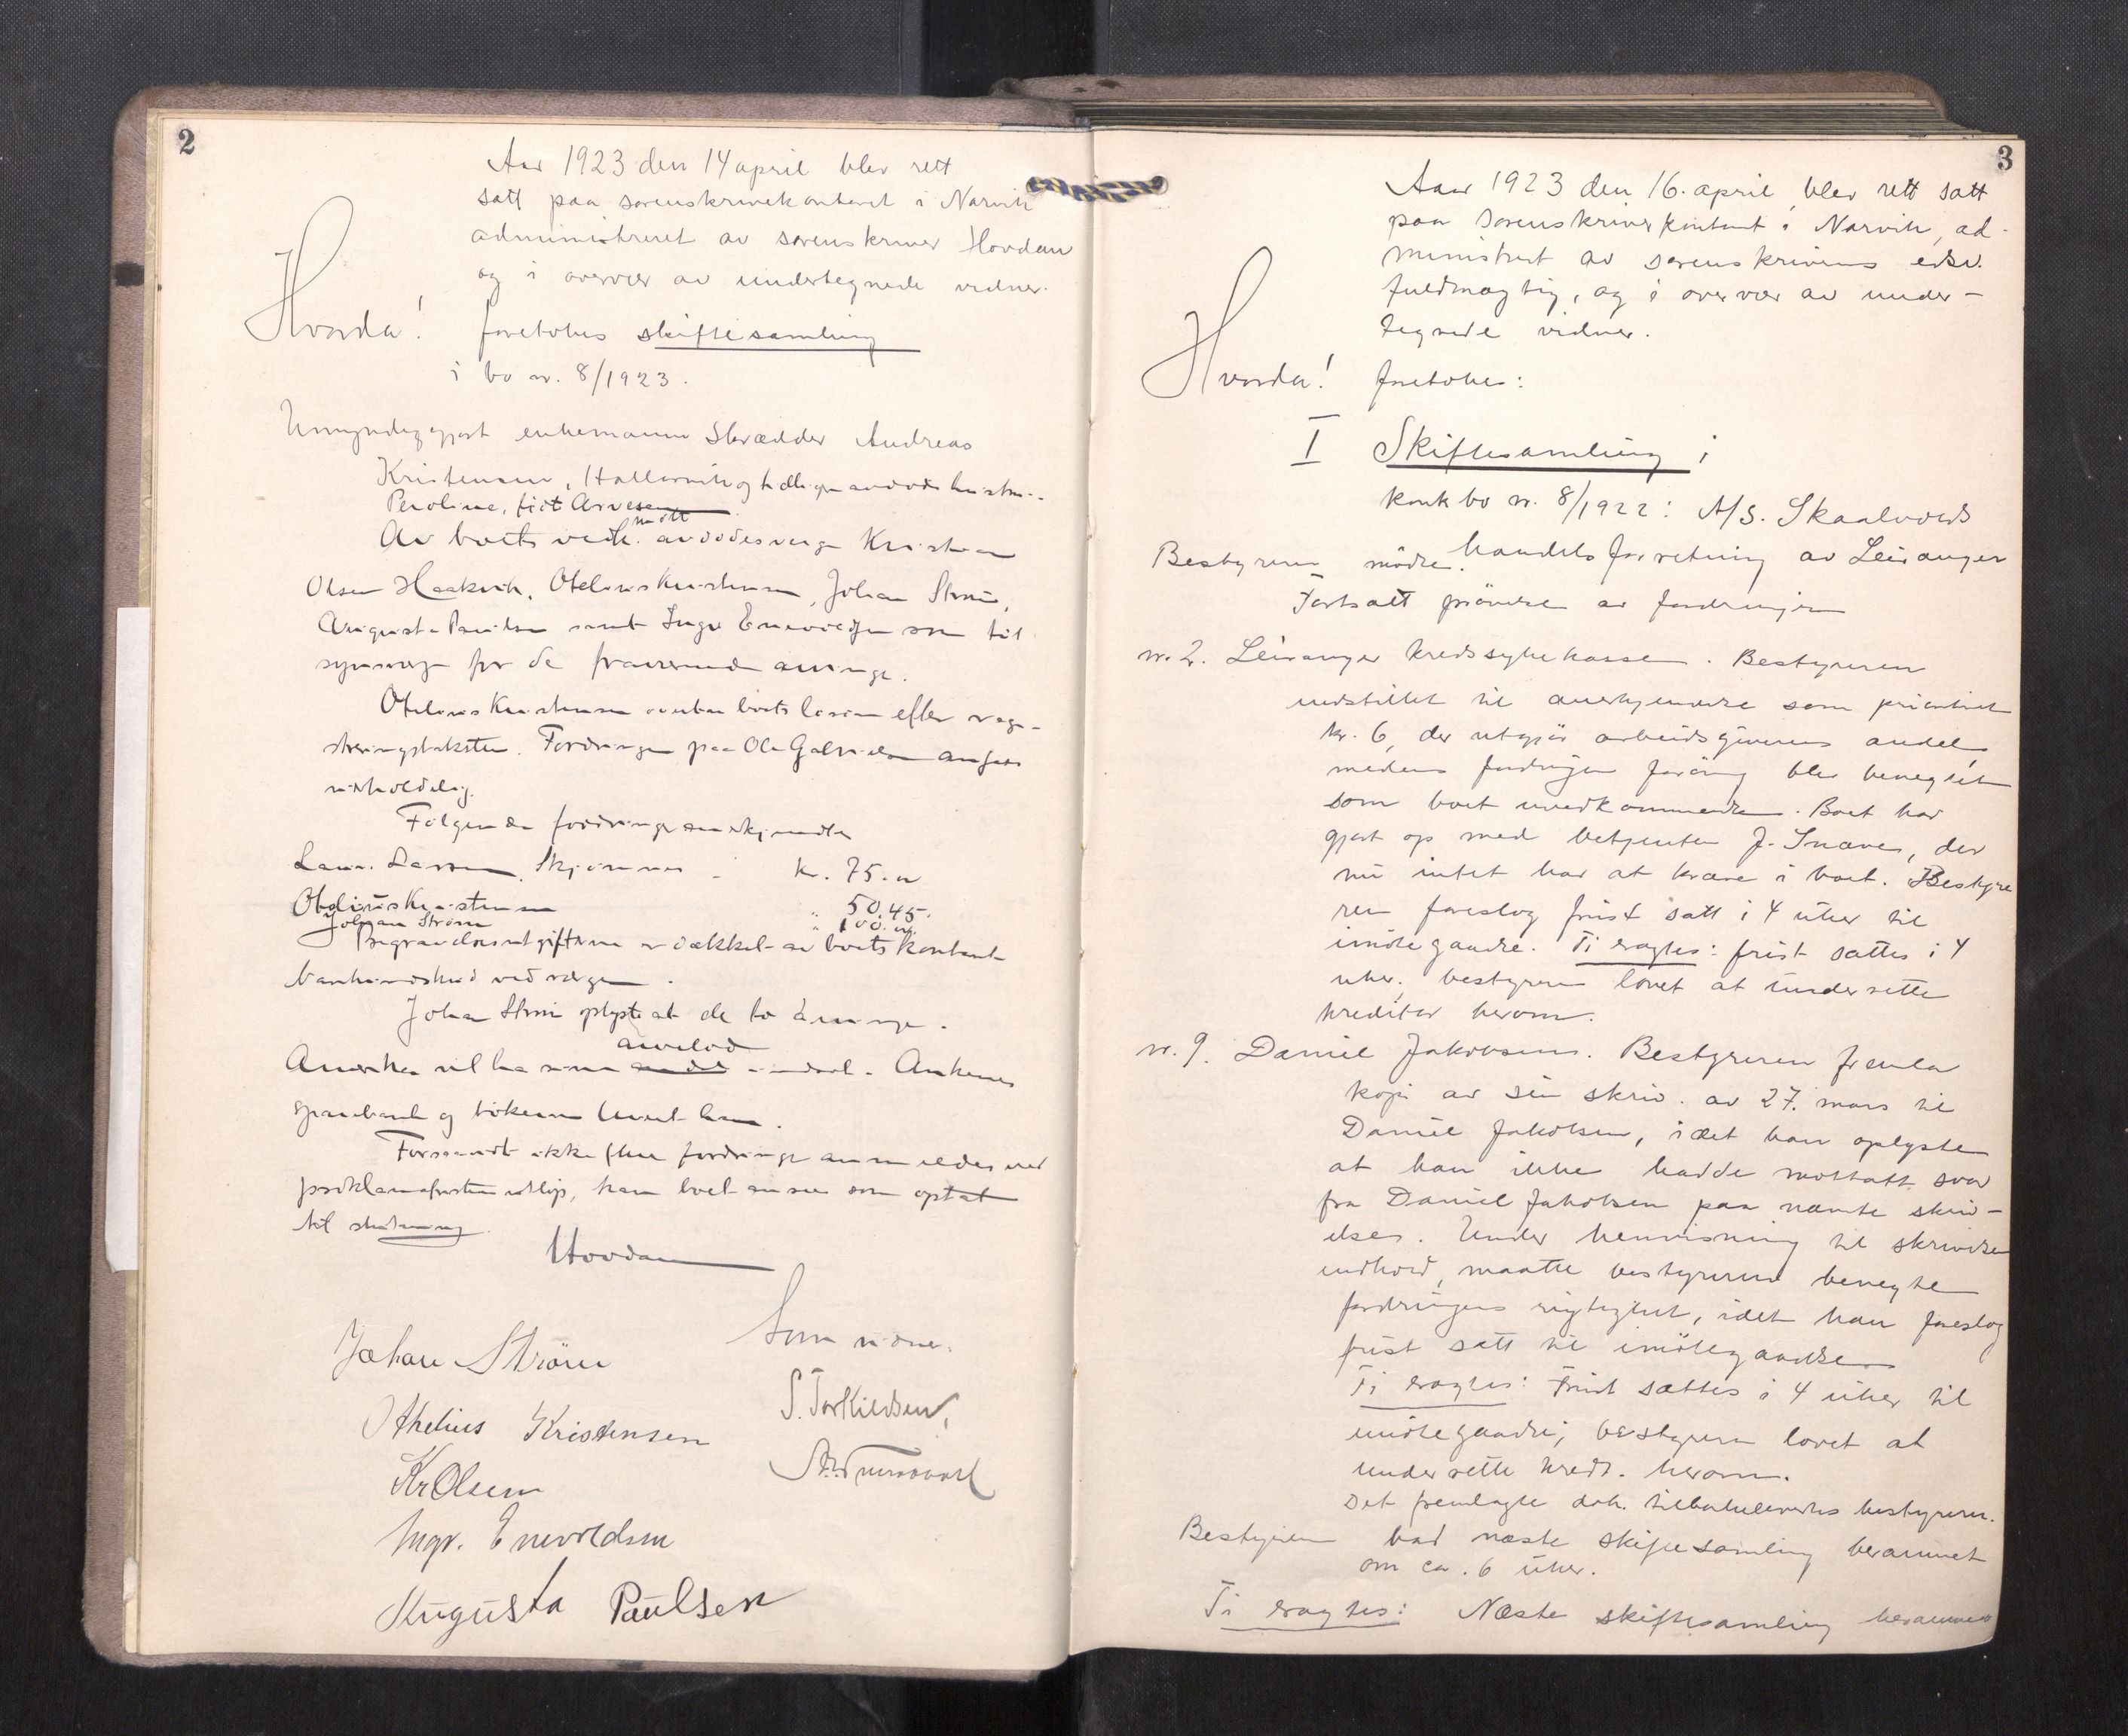 2
Aar 1923 den 14 april blev rett
satt paa sorenskriverkontoret i Narvik
administreret av sorenskriver Hovdan
og i overvær av undertegnede vidner.
Hvorda! foretokes skiftesamling
i bo nr. 8/1923.
Umyndiggjort enkemann Skrædder Andreas
Kristensen, og tidligere avdøde hustru
Peroline, født Arvesen
Av boets vedk. møtt avdødes verge Kristian
Olsen Haakvik, Otelius Kristensen, Johan Strøm,
Augusta Paulsen samt Ingv. Enevoldsen som til
synsverge for de fraværende arvinge.
Otelius Kristensen overtar boets løsøre efter regi-
streringstaksten. Fordringen paa Ole ansees
uerholdelig.
Følgende fordringer anerkjendtes
Laur. Larsen, Skjomnes kr. 75.00
Otelius Kristensen " 50.45.
Johan Strøm " 100.00.
Begravelsesutgifterne er dækket av boets kontant
beholdning ved vergen.
Johan Strøm oplyste at de to arvinge i
Amerika vil ha sine andel arvelod indsat i Ankenes
sparebank og bøkerne levert ham.
Forsaavidt ikke flere fordringer anmeldes ved
proklamafristens utløp, kan boet ansees som optat
til slutning.
Hovdan
Som vidner:
Johan Strøm
S. Torkildsen,
Othelius Kristensen
Kr Olsen
Ingv. Enevoldsen
Augusta Paulsen
3
Aar 1923 den 16. april blev rett satt
paa sorenskriverkontoret i Narvik, ad-
ministrert av sorenskriverens edsv.
fuldmægtig, og i overvær av under-
tegnede vidner.
Hvorda! foretokes:
I Skiftesamling i
konk bo nr. 8/1922: A/S. Skaalvolds
handelsforretning av Leiranger
Bestyreren mødte.
Fortsatt prøvelse av fordringer
nr. 2. Leiranger kredssykekasse. Bestyreren
indstillet til anerkjendelse som prioritert
kr. 6, der utgjør arbeidsgiverens andel,
medens fordringen forøvrig blev benegtet
som boet uvedkommende. Boet har
gjort op med betjenten J. Snave, der
nu intet har at kræve i boet. Bestyre
ren foreslog frist satt i 4 uker til
imøtegaaelse. Ti eragtes: frist sættes i 4
uker; bestyreren lovet at underrette
kreditor herom.
nr. 9. Daniel Jakobsen. Bestyreren fremla
kopi av sin skriv. av 27. mars til
Daniel Jakobsen, idet han oplyste
at han ikke hadde mottatt svar
fra Daniel Jakobsen paa nævnte skriv-
elser. Under henvisning til skrivelsens
indhold, maatte bestyreren benegte
fordringens rigtighet, idet han foreslog
frist satt til imøtegaaelse
Ti eragtes: Frist sættes i 4 uker til
imøtegaaelse; bestyreren lovet at
underrette kred. herom.
Det fremlagte dok. tilbakeleveredes bestyreren.
Bestyreren bad næste skiftesamling berammet
om ca. 6 uker.
Ti eragtes: Næste skiftesamling berammes